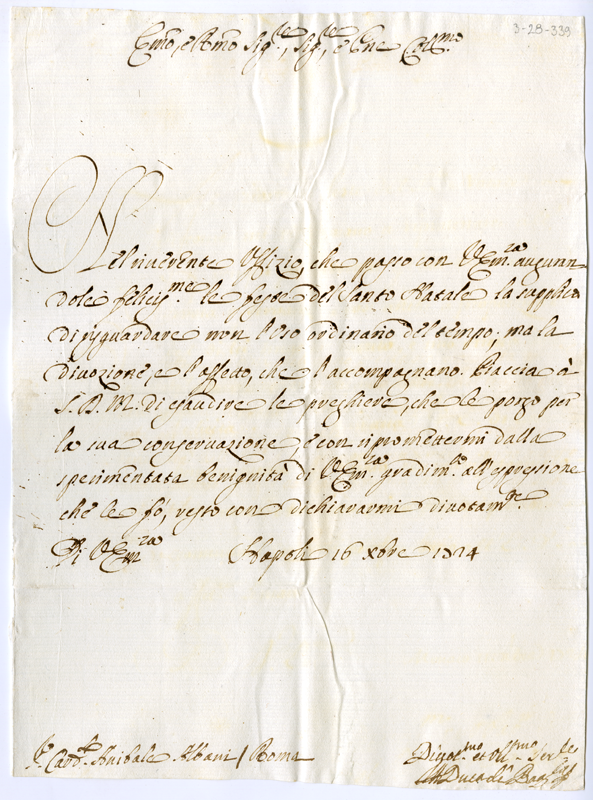 3-28-339
Emo, e Rmo Sig.re, Sig.re, e Pne Col.mo
Nel riverente Offizio, che passo con V.Em.za auguran-
dole feliciss.me le feste del Santo Natale la supplico
di risguardare non l'Uso ordinario del tempo; ma la
divozione, e l'affetto, che l'accompagnano. Piaccia à
S. D. M. di esaudire le preghiere, che le porgo per
la sua conservazione e con ripromettermi dalla
sperimentata benignità di V.Em.za gradim.to all'espressione
che le fò, resto con dichiararmi divotam.te
Di V.Em.za Napoli 16 xbre 1714
Sr. Card.le Anibale Albani / Roma
Divot.mo et Obl.mo Ser.re
Il Duca di